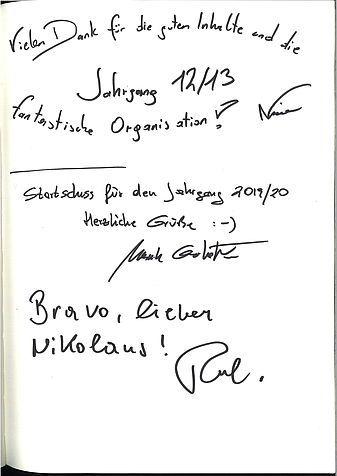 Vielen Dank für die guten Inhalte und die
Jahrgang 12/13
fantastische Organisation! Nina
Startschuss für den Jahrgang 2019/20
Herzliche Grüße :-)
Bravo, lieber
Nikolaus!